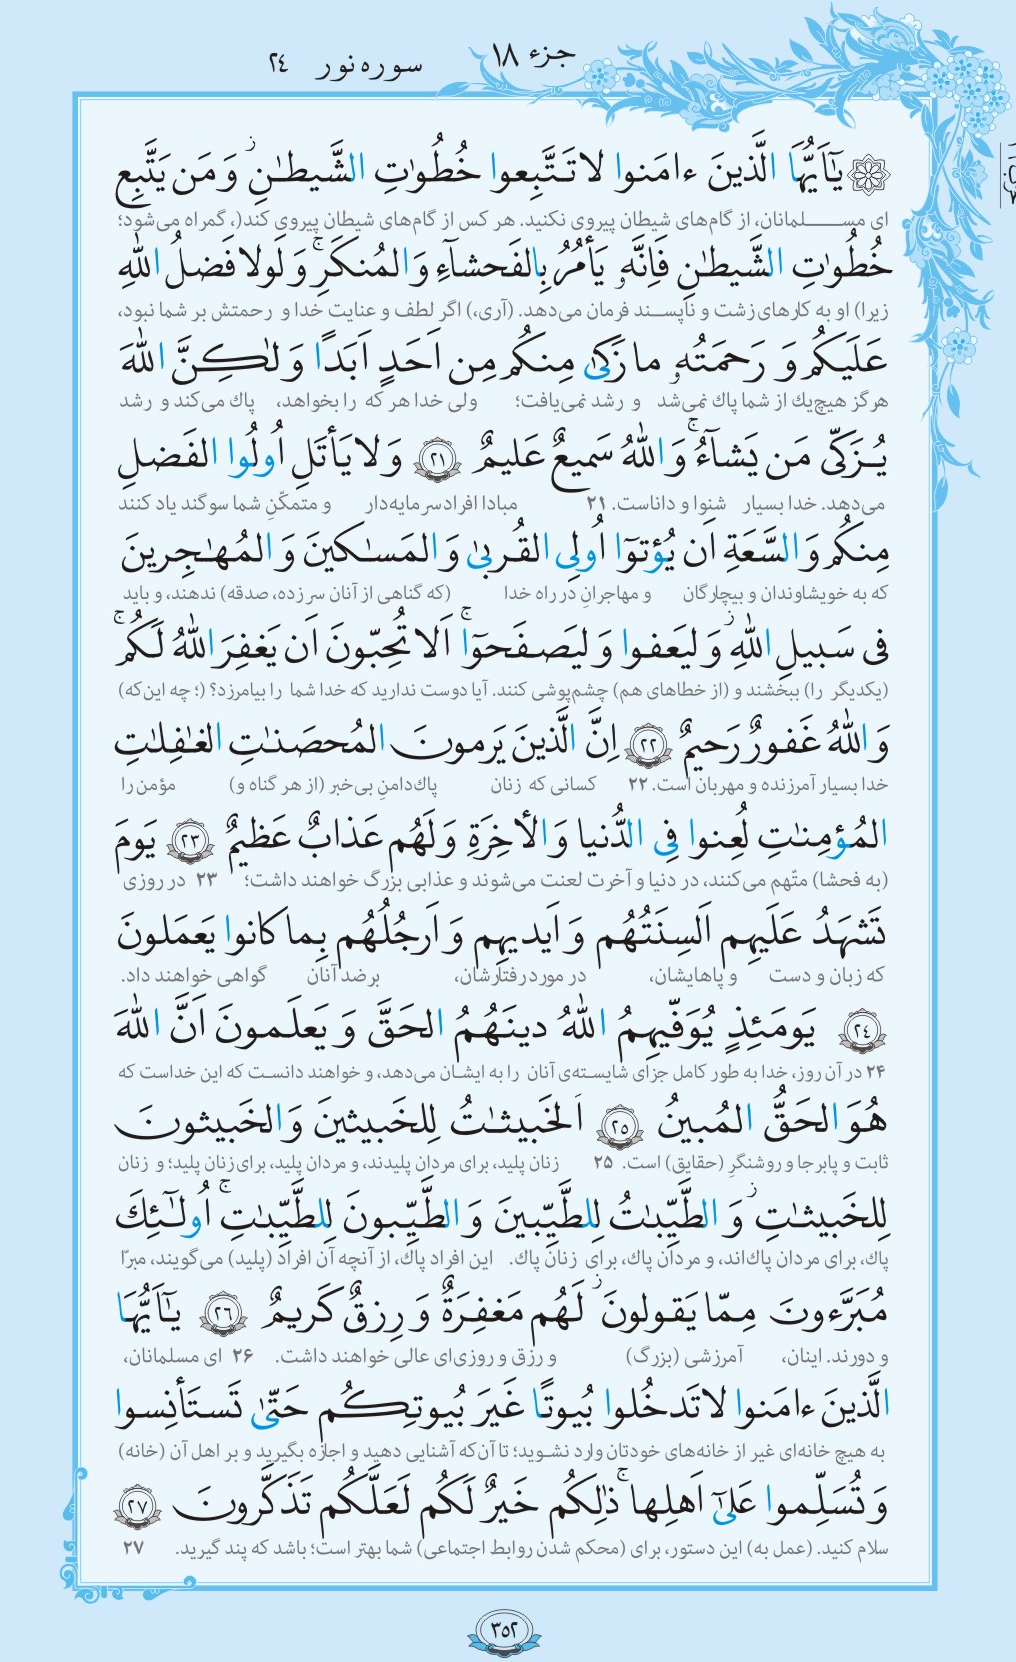 جزء ۱۸
سوره نور ۲۴
يٰٓاَيُّهَا الَّذينَ ءامَنوا لا تَتَّبِعوا خُطُوٰتِ الشَّيطـٰنِ ۚ وَ مَن يَتَّبِع
ای مسلمانان، از گام‌های شیطان پیروی نکنید. هر کس از گام‌های شیطان پیروی کند(، گمراه می‌شود؛
خُطُوٰتِ الشَّيطـٰنِ فَاِنَّهٗ يَأمُرُ بِالفَحشآءِ وَ المُنكَرِ ۚ وَ لَولا فَضلُ اللّٰهِ
زیرا) او به کارهای زشت و ناپسند فرمان می‌دهد. (آری،) اگر لطف و عنایت خدا و رحمتش بر شما نبود،
عَلَيكُم وَ رَحمَتُهٗ ما زَكىٰ مِنكُم مِن اَحَدٍ اَبَدًا وَ لٰكِنَّ اللّٰهَ
هرگز هیچ‌یك از شما پاك نمی‌شد و رشد نمی‌یافت؛ ولی خدا هر که را بخواهد، پاك می‌کند و رشد
يُزَكّى مَن يَشآءُ ۚ وَ اللّٰهُ سَميعٌ عَليمٌ ﴿۲۱﴾ وَ لا يَأتَلِ اُولُوا الفَضلِ
می‌دهد. خدا بسیار شنوا و داناست. ۲۱ مبادا افراد سرمایه‌دار و متمکّنِ شما سوگند یاد کنند
مِنكُم وَ السَّعَةِ اَن يُؤتوٓا اُولِى القُربىٰ وَ المَسـٰكينَ وَ المُهـٰجِرينَ
که به خویشاوندان و بیچارگان و مهاجرانِ در راه خدا (که گناهی از آنان سر زده، صدقه) ندهند، و باید
فى سَبيلِ اللّٰهِ ۖ وَ ليَعفوا وَ ليَصفَحوٓا ۗ اَلا تُحِبّونَ اَن يَغفِرَ اللّٰهُ لَكُم ۗ
(یکدیگر را) ببخشند و (از خطاهای هم) چشم‌پوشی کنند. آیا دوست ندارید که خدا شما را بیامرزد؟ (؛ چه این‌که)
وَ اللّٰهُ غَفورٌ رَحيمٌ ﴿۲۲﴾ اِنَّ الَّذينَ يَرمونَ المُحصَنـٰتِ الغـٰفِلـٰتِ
خدا بسیار آمرزنده و مهربان است. ۲۲ کسانی که زنان پاك‌دامنِ بی‌خبر (از هر گناه و) مؤمن را
المُؤمِنـٰتِ لُعِنوا فِى الدُّنيا وَ الأخِرَةِ وَ لَهُم عَذابٌ عَظيمٌ ﴿۲۳﴾ يَومَ
(به فحشا) متّهم می‌کنند، در دنیا و آخرت لعنت می‌شوند و عذابی بزرگ خواهند داشت؛ ۲۳ در روزی
تَشهَدُ عَلَيهِم اَلسِنَتُهُم وَ اَيديهِم وَ اَرجُلُهُم بِما كانوا يَعمَلونَ
که زبان و دست و پاهایشان، در مورد رفتارشان، بر ضد آنان گواهی خواهند داد.
﴿۲۴﴾ يَومَئِذٍ يُوَفّيهِمُ اللّٰهُ دينَهُمُ الحَقَّ وَ يَعلَمونَ اَنَّ اللّٰهَ
۲۴ در آن روز، خدا به طور کامل جزای شایسته‌ی آنان را به ایشان می‌دهد، و خواهند دانست که این خداست که
هُوَ الحَقُّ المُبينُ ﴿۲۵﴾ اَلخَبيثـٰتُ لِلخَبيثينَ وَ الخَبيثونَ
ثابت و پابرجا و روشنگرِ (حقایق) است. ۲۵ زنان پلید، برای مردان پلیدند، و مردان پلید، برای زنان پلید؛ و زنان
لِلخَبيثـٰتِ ۖ وَ الطَّيِّبـٰتُ لِلطَّيِّبينَ وَ الطَّيِّبونَ لِلطَّيِّبـٰتِ ۚ اُولـٰٓئِكَ
پاك، برای مردان پاك‌اند، و مردان پاك، برای زنان پاك. این افراد پاك، از آنچه آن افراد (پلید) می‌گویند، مبرّا
مُبَرَّءونَ مِمّا يَقولونَ ۖ لَهُم مَغفِرَةٌ وَ رِزقٌ كَريمٌ ﴿۲۶﴾ يٰٓاَيُّهَا
و دورند. اینان، آمرزشی (بزرگ) و رزق و روزی‌ای عالی خواهند داشت. ۲۶ ای مسلمانان،
الَّذينَ ءامَنوا لا تَدخُلوا بُيوتًا غَيرَ بُيوتِكُم حَتّىٰ تَستَأنِسوا
به هیچ خانه‌ای غیر از خانه‌های خودتان وارد نشوید؛ تا آن‌که آشنایی دهید و اجازه بگیرید و بر اهل آن (خانه)
وَ تُسَلِّموا عَلىٰٓ اَهلِها ۚ ذٰلِكُم خَيرٌ لَكُم لَعَلَّكُم تَذَكَّرونَ ﴿۲۷﴾
سلام کنید. (عمل به) این دستور، برای (محکم شدن روابط اجتماعی) شما بهتر است؛ باشد که پند گیرید. ۲۷
۳۵۲